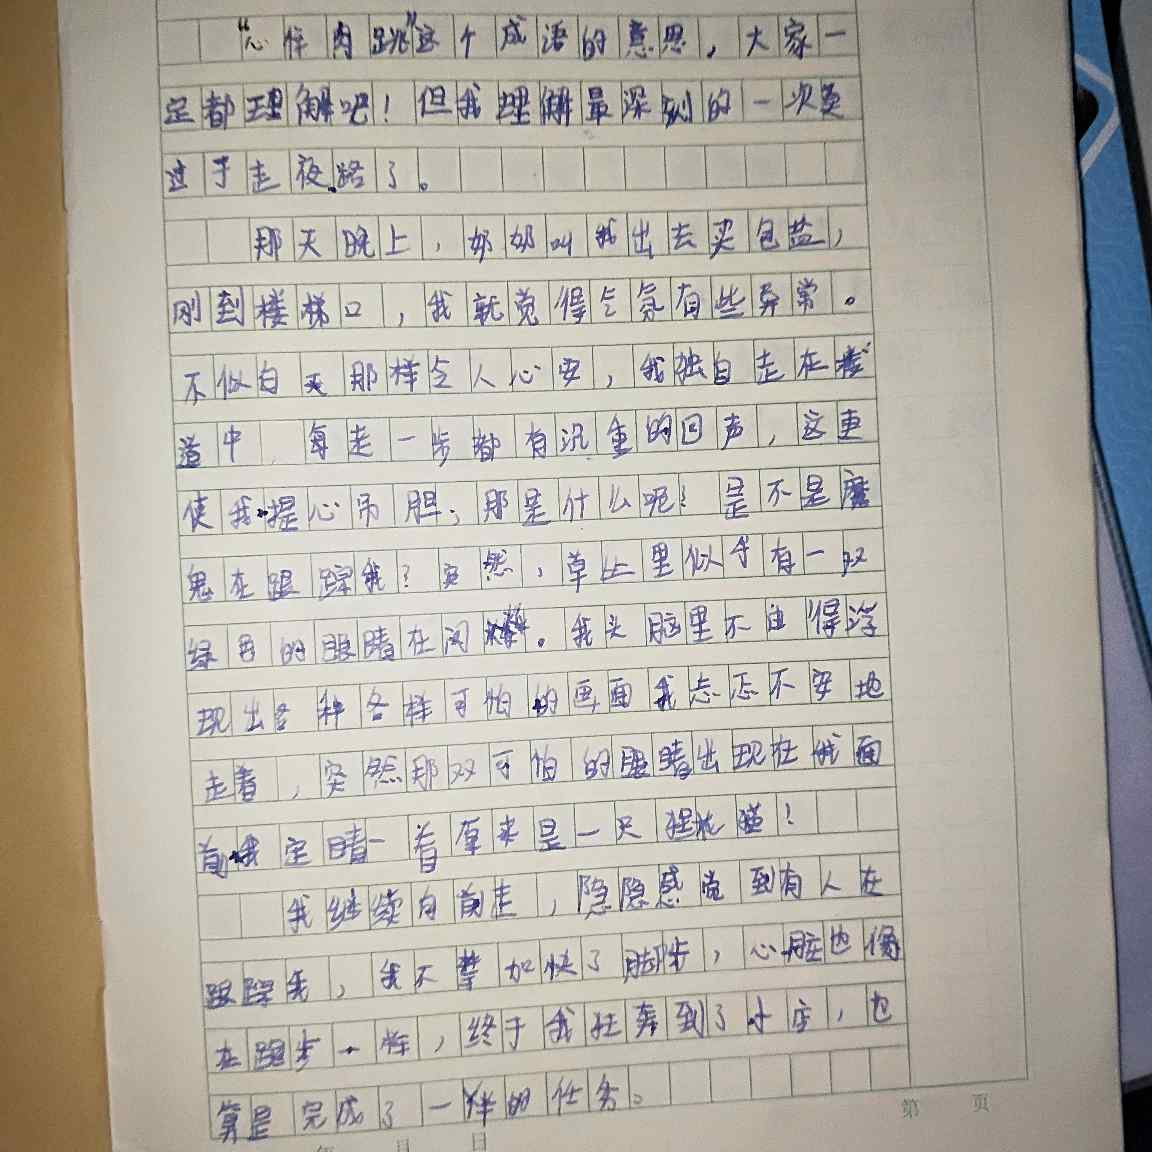 “心惊肉跳”这个成语的意思，大家一
定都理解吧！但我理解最深刻的一次莫
过于走夜路了。
那天晚上，奶奶叫我出去买包盐，
刚到楼梯口，我就觉得气氛有些异常。
不似白天那样令人心安，我独自走在楼
道中，每走一步都有沉重的回声，这更
使我提心吊胆，那是什么呢？是不是魔
鬼在跟踪我？突然，草丛里似乎有一双
绿色的眼睛在闪烁。我头脑里不由得浮
现出各种各样可怕的画面我忐忑不安地
走着，突然那双可怕的眼睛出现在我面
前我定睛一看原来是一只猩
我继续向前走，隐隐感觉到有人在
跟踪我，我不禁加快了脚步，心脏也像
在跑步一样，终于我狂奔到了小店，也
算是完成了一样的任务。
第 页
年 月 日